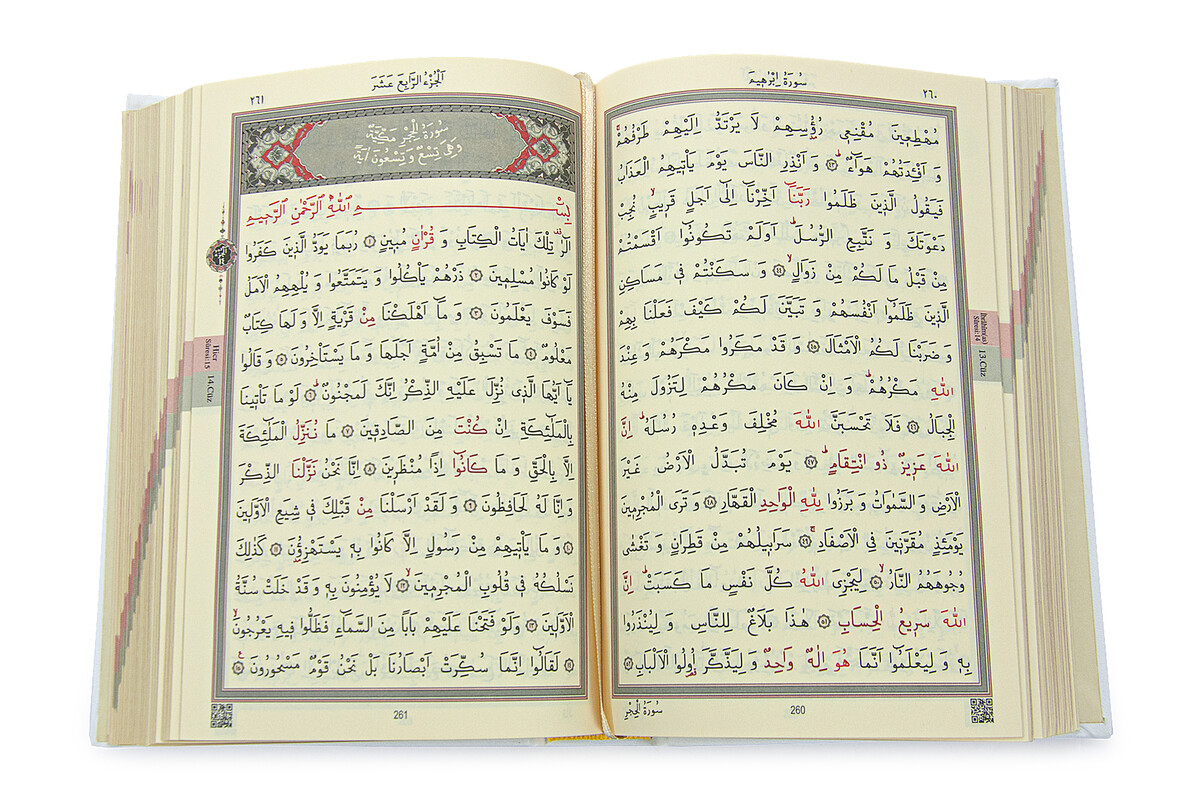 سُورَةُ اِبْرٰه۪يمَ
٢٦٠
مُهْطِع۪ينَ مُقْنِع۪ي رُؤُ۫سِهِمْ لَا يَرْتَدُّ اِلَيْهِمْ طَرْفُهُمْۚ
وَ اَفْـِٔدَتُهُمْ هَوَٓاءٌۜ ﴿٤٣﴾ وَ اَنْذِرِ النَّاسَ يَوْمَ يَأْت۪يهِمُ الْعَذَابُ
فَيَقُولُ الَّذ۪ينَ ظَلَمُوا رَبَّنَٓا اَخِّرْنَٓا اِلٰٓى اَجَلٍ قَر۪يبٍۙ نُجِبْ
دَعْوَتَكَ وَ نَتَّبِعِ الرُّسُلَۜ اَوَلَمْ تَكُونُٓوا اَقْسَمْتُمْ
مِنْ قَبْلُ مَا لَكُمْ مِنْ زَوَالٍۙ ﴿٤٤﴾ وَ سَكَنْتُمْ ف۪ي مَسَاكِنِ
الَّذ۪ينَ ظَلَمُٓوا اَنْفُسَهُمْ وَ تَبَيَّنَ لَكُمْ كَيْفَ فَعَلْنَا بِهِمْ
وَ ضَرَبْنَا لَكُمُ الْاَمْثَالَ ﴿٤٥﴾ وَ قَدْ مَكَرُوا مَكْرَهُمْ وَ عِنْدَ
اللّٰهِ مَكْرُهُمْۜ وَ اِنْ كَانَ مَكْرُهُمْ لِتَزُولَ مِنْهُ
الْجِبَالُ ﴿٤٦﴾ فَلَا تَحْسَبَنَّ اللّٰهَ مُخْلِفَ وَعْدِه۪ رُسُلَهُۜ اِنَّ
اللّٰهَ عَز۪يزٌ ذُو انْتِقَامٍۜ ﴿٤٧﴾ يَوْمَ تُبَدَّلُ الْاَرْضُ غَيْرَ
الْاَرْضِ وَ السَّمٰوَاتُ وَ بَرَزُوا لِلّٰهِ الْوَاحِدِ الْقَهَّارِ ﴿٤٨﴾ وَ تَرَى الْمُجْرِم۪ينَ
يَوْمَئِذٍ مُقَرَّن۪ينَ فِي الْاَصْفَادِۚ ﴿٤٩﴾ سَرَاب۪يلُهُمْ مِنْ قَطِرَانٍ وَ تَغْشٰى
وُجُوهَهُمُ النَّارُۙ ﴿٥٠﴾ لِيَجْزِيَ اللّٰهُ كُلَّ نَفْسٍ مَا كَسَبَتْۜ اِنَّ
اللّٰهَ سَر۪يعُ الْحِسَابِ ﴿٥١﴾ هٰذَا بَلَاغٌ لِلنَّاسِ وَ لِيُنْذَرُوا
بِه۪ وَ لِيَعْلَمُٓوا اَنَّمَا هُوَ اِلٰهٌ وَاحِدٌ وَ لِيَذَّكَّرَ اُو۬لُوا الْاَلْبَابِ ﴿٥٢﴾
İbrâhîm(as)
Sûresi:14
13.Cüz
260
سُورَةُ الْحِجْرِ
اَلْجُزْءُ الرَّابِعَ عَشَرَ
٢٦١
سُورَةُ الْحِجْرِ مَكِّيَّةٌ
وَهِيَ تِسْعٌ وَ تِسْعُونَ اٰيَةً
بِسْمِ اللّٰهِ الرَّحْمٰنِ الرَّح۪يمِ
الٓرٰ۠ تِلْكَ اٰيَاتُ الْكِتَابِ وَ قُرْاٰنٍ مُب۪ينٍ ﴿١﴾ رُبَمَا يَوَدُّ الَّذ۪ينَ كَفَرُوا
لَوْ كَانُوا مُسْلِم۪ينَ ﴿٢﴾ ذَرْهُمْ يَأْكُلُوا وَ يَتَمَتَّعُوا وَ يُلْهِهِمُ الْاَمَلُ
فَسَوْفَ يَعْلَمُونَ ﴿٣﴾ وَ مَٓا اَهْلَكْنَا مِنْ قَرْيَةٍ اِلَّا وَ لَهَا كِتَابٌ
مَعْلُومٌ ﴿٤﴾ مَا تَسْبِقُ مِنْ اُمَّةٍ اَجَلَهَا وَ مَا يَسْتَأْخِرُونَ ﴿٥﴾ وَ قَالُوا
يَٓا اَيُّهَا الَّذ۪ي نُزِّلَ عَلَيْهِ الذِّكْرُ اِنَّكَ لَمَجْنُونٌۜ ﴿٦﴾ لَوْ مَا تَأْت۪ينَا
بِالْمَلٰٓئِكَةِ اِنْ كُنْتَ مِنَ الصَّادِق۪ينَ ﴿٧﴾ مَا نُنَزِّلُ الْمَلٰٓئِكَةَ
اِلَّا بِالْحَقِّ وَ مَا كَانُٓوا اِذًا مُنْظَر۪ينَ ﴿٨﴾ اِنَّا نَحْنُ نَزَّلْنَا الذِّكْرَ
وَ اِنَّا لَهُ لَحَافِظُونَ ﴿٩﴾ وَ لَقَدْ اَرْسَلْنَا مِنْ قَبْلِكَ ف۪ي شِيَعِ الْاَوَّل۪ينَ
﴿١٠﴾ وَ مَا يَأْت۪يهِمْ مِنْ رَسُولٍ اِلَّا كَانُوا بِه۪ يَسْتَهْزِؤُ۫نَ ﴿١١﴾ كَذٰلِكَ
نَسْلُكُهُ ف۪ي قُلُوبِ الْمُجْرِم۪ينَۙ ﴿١٢﴾ لَا يُؤْمِنُونَ بِه۪ وَ قَدْ خَلَتْ سُنَّةُ
الْاَوَّل۪ينَ ﴿١٣﴾ وَلَوْ فَتَحْنَا عَلَيْهِمْ بَابًا مِنَ السَّمَٓاءِ فَظَلُّوا ف۪يهِ يَعْرُجُونَۙ
﴿١٤﴾ لَقَالُٓوا اِنَّمَا سُكِّرَتْ اَبْصَارُنَا بَلْ نَحْنُ قَوْمٌ مَسْحُورُونَ۟ ﴿١٥﴾
Hicr
Sûresi:15
14.Cüz
261